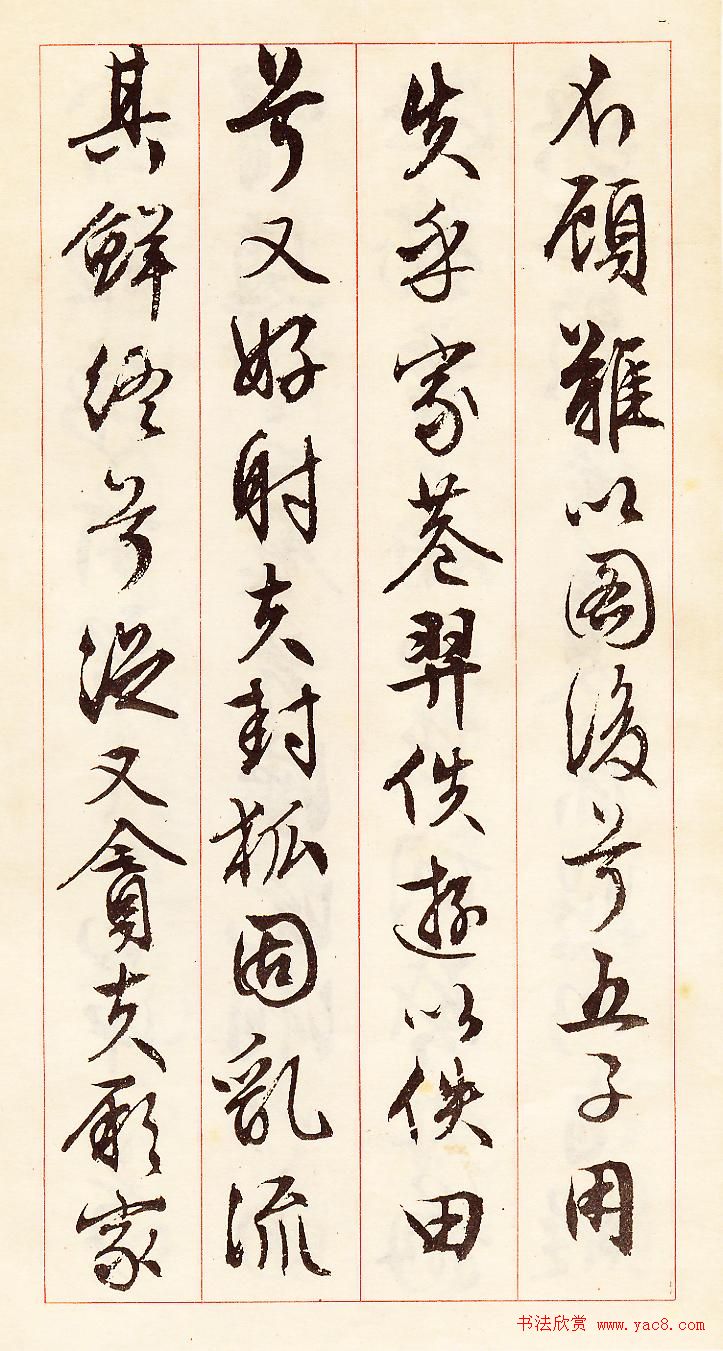 不顧難以圖後兮五子用
失乎家巷羿佚遊以佚田
兮又好射夫封狐固亂流
其鮮終兮浞又貪夫厥家
书法欣赏 www.yac8.com